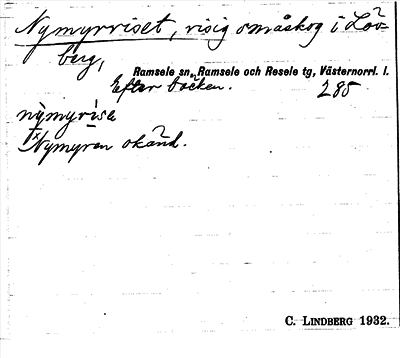 Nymyrriset, risig småskog i Löv-
berg,
Ramsele sn., Ramsele och Resele tg, Västernorrl. l.
Efter bäcken. 285
nỳmyri̇̀sa
×Nymyren okänd.
C. LINDBERG 1932.